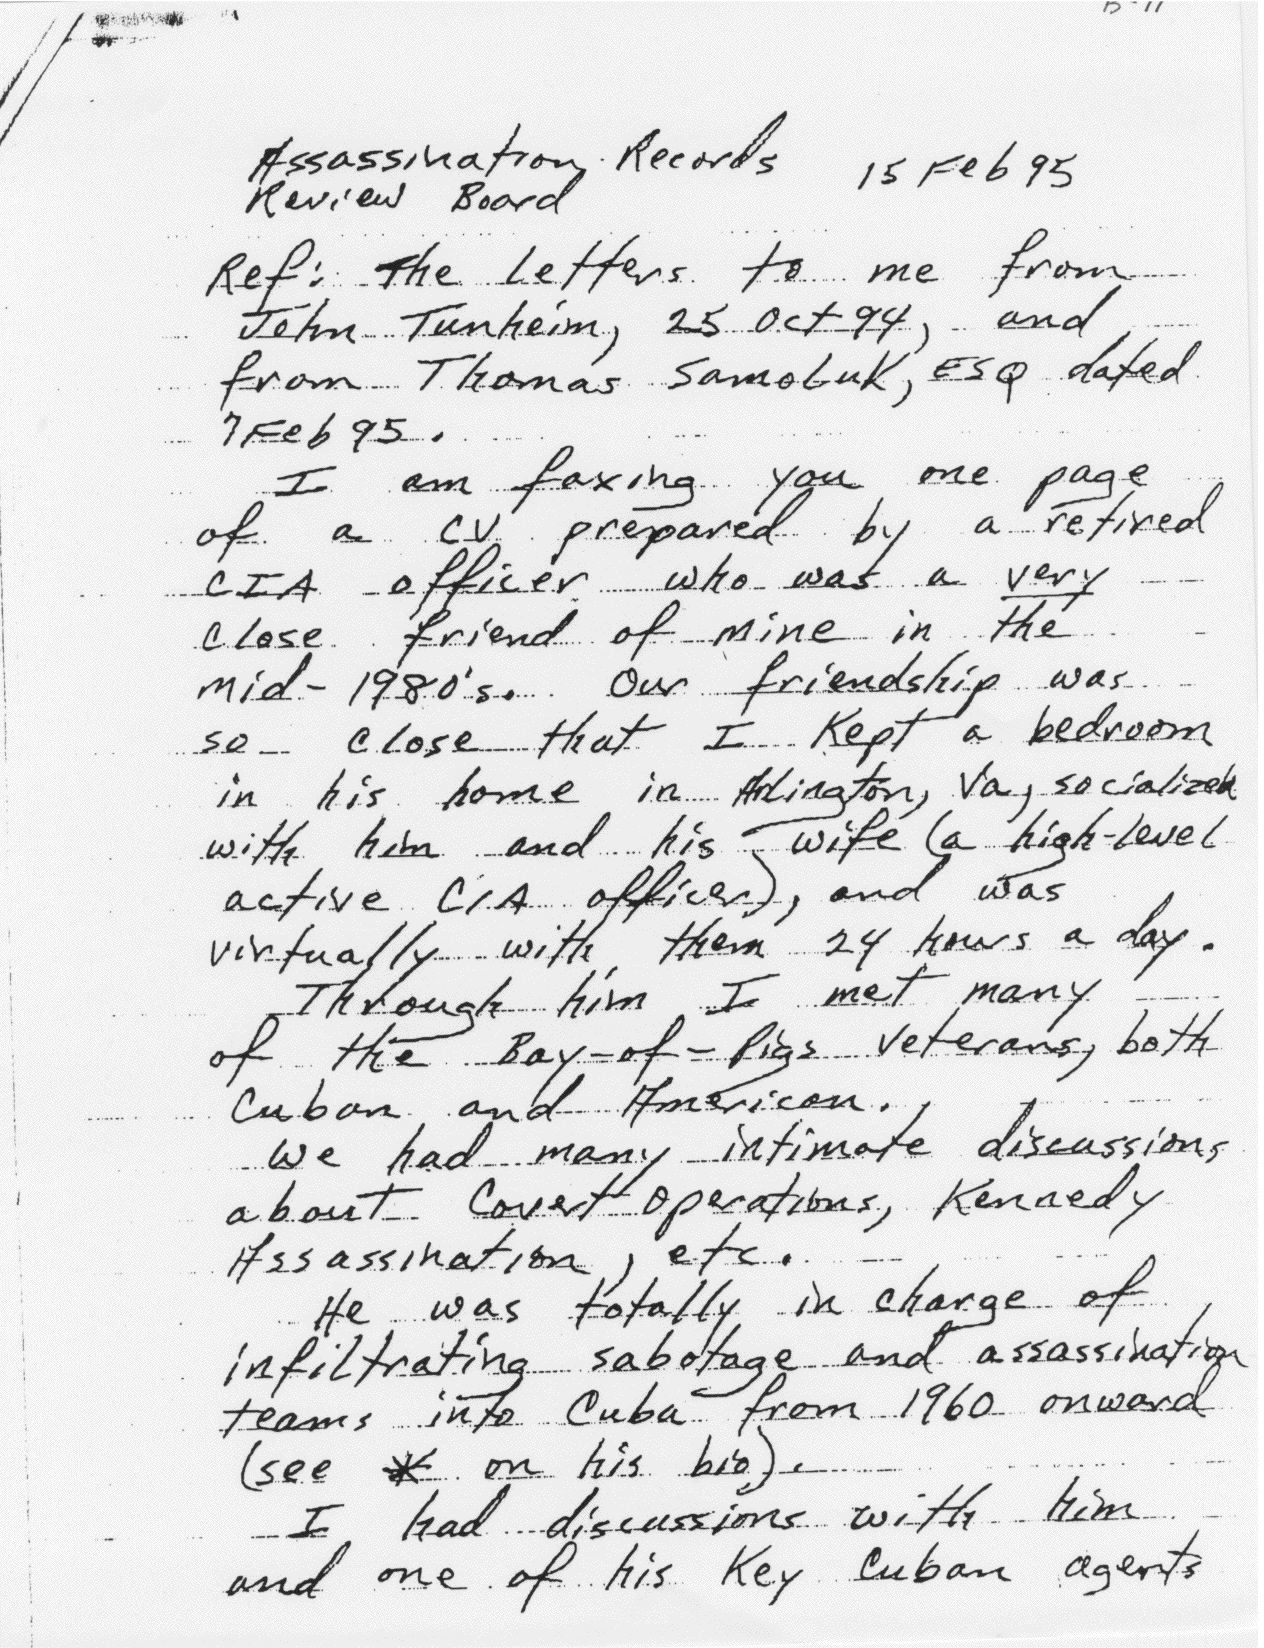 Assassination Records 15 Feb 95
Review Board
Ref: The letters to me from
John Tunheim, 25 Oct 94, and
from Thomas Samoluk, ESQ dated
7 Feb 95.
I am faxing you one page
of a CV prepared by a retired
CIA officer who was a very
close friend of mine in the
mid-1980's. Our friendship was
so close that I kept a bedroom
in his home in Arlington, Va, socialized
with him and his wife (a high-level
active CIA officer), and was
virtually with them 24 hours a day.
Through him I met many
of the Bay-of-Pigs veterans, both
Cuban and American.
We had many intimate discussions
about Covert Operations, Kennedy
Assassination, etc.
He was totally in charge of
infiltrating sabotage and assassination
teams into Cuba from 1960 onward
(see * on his bio).
I had discussions with him
and one of his key Cuban agents